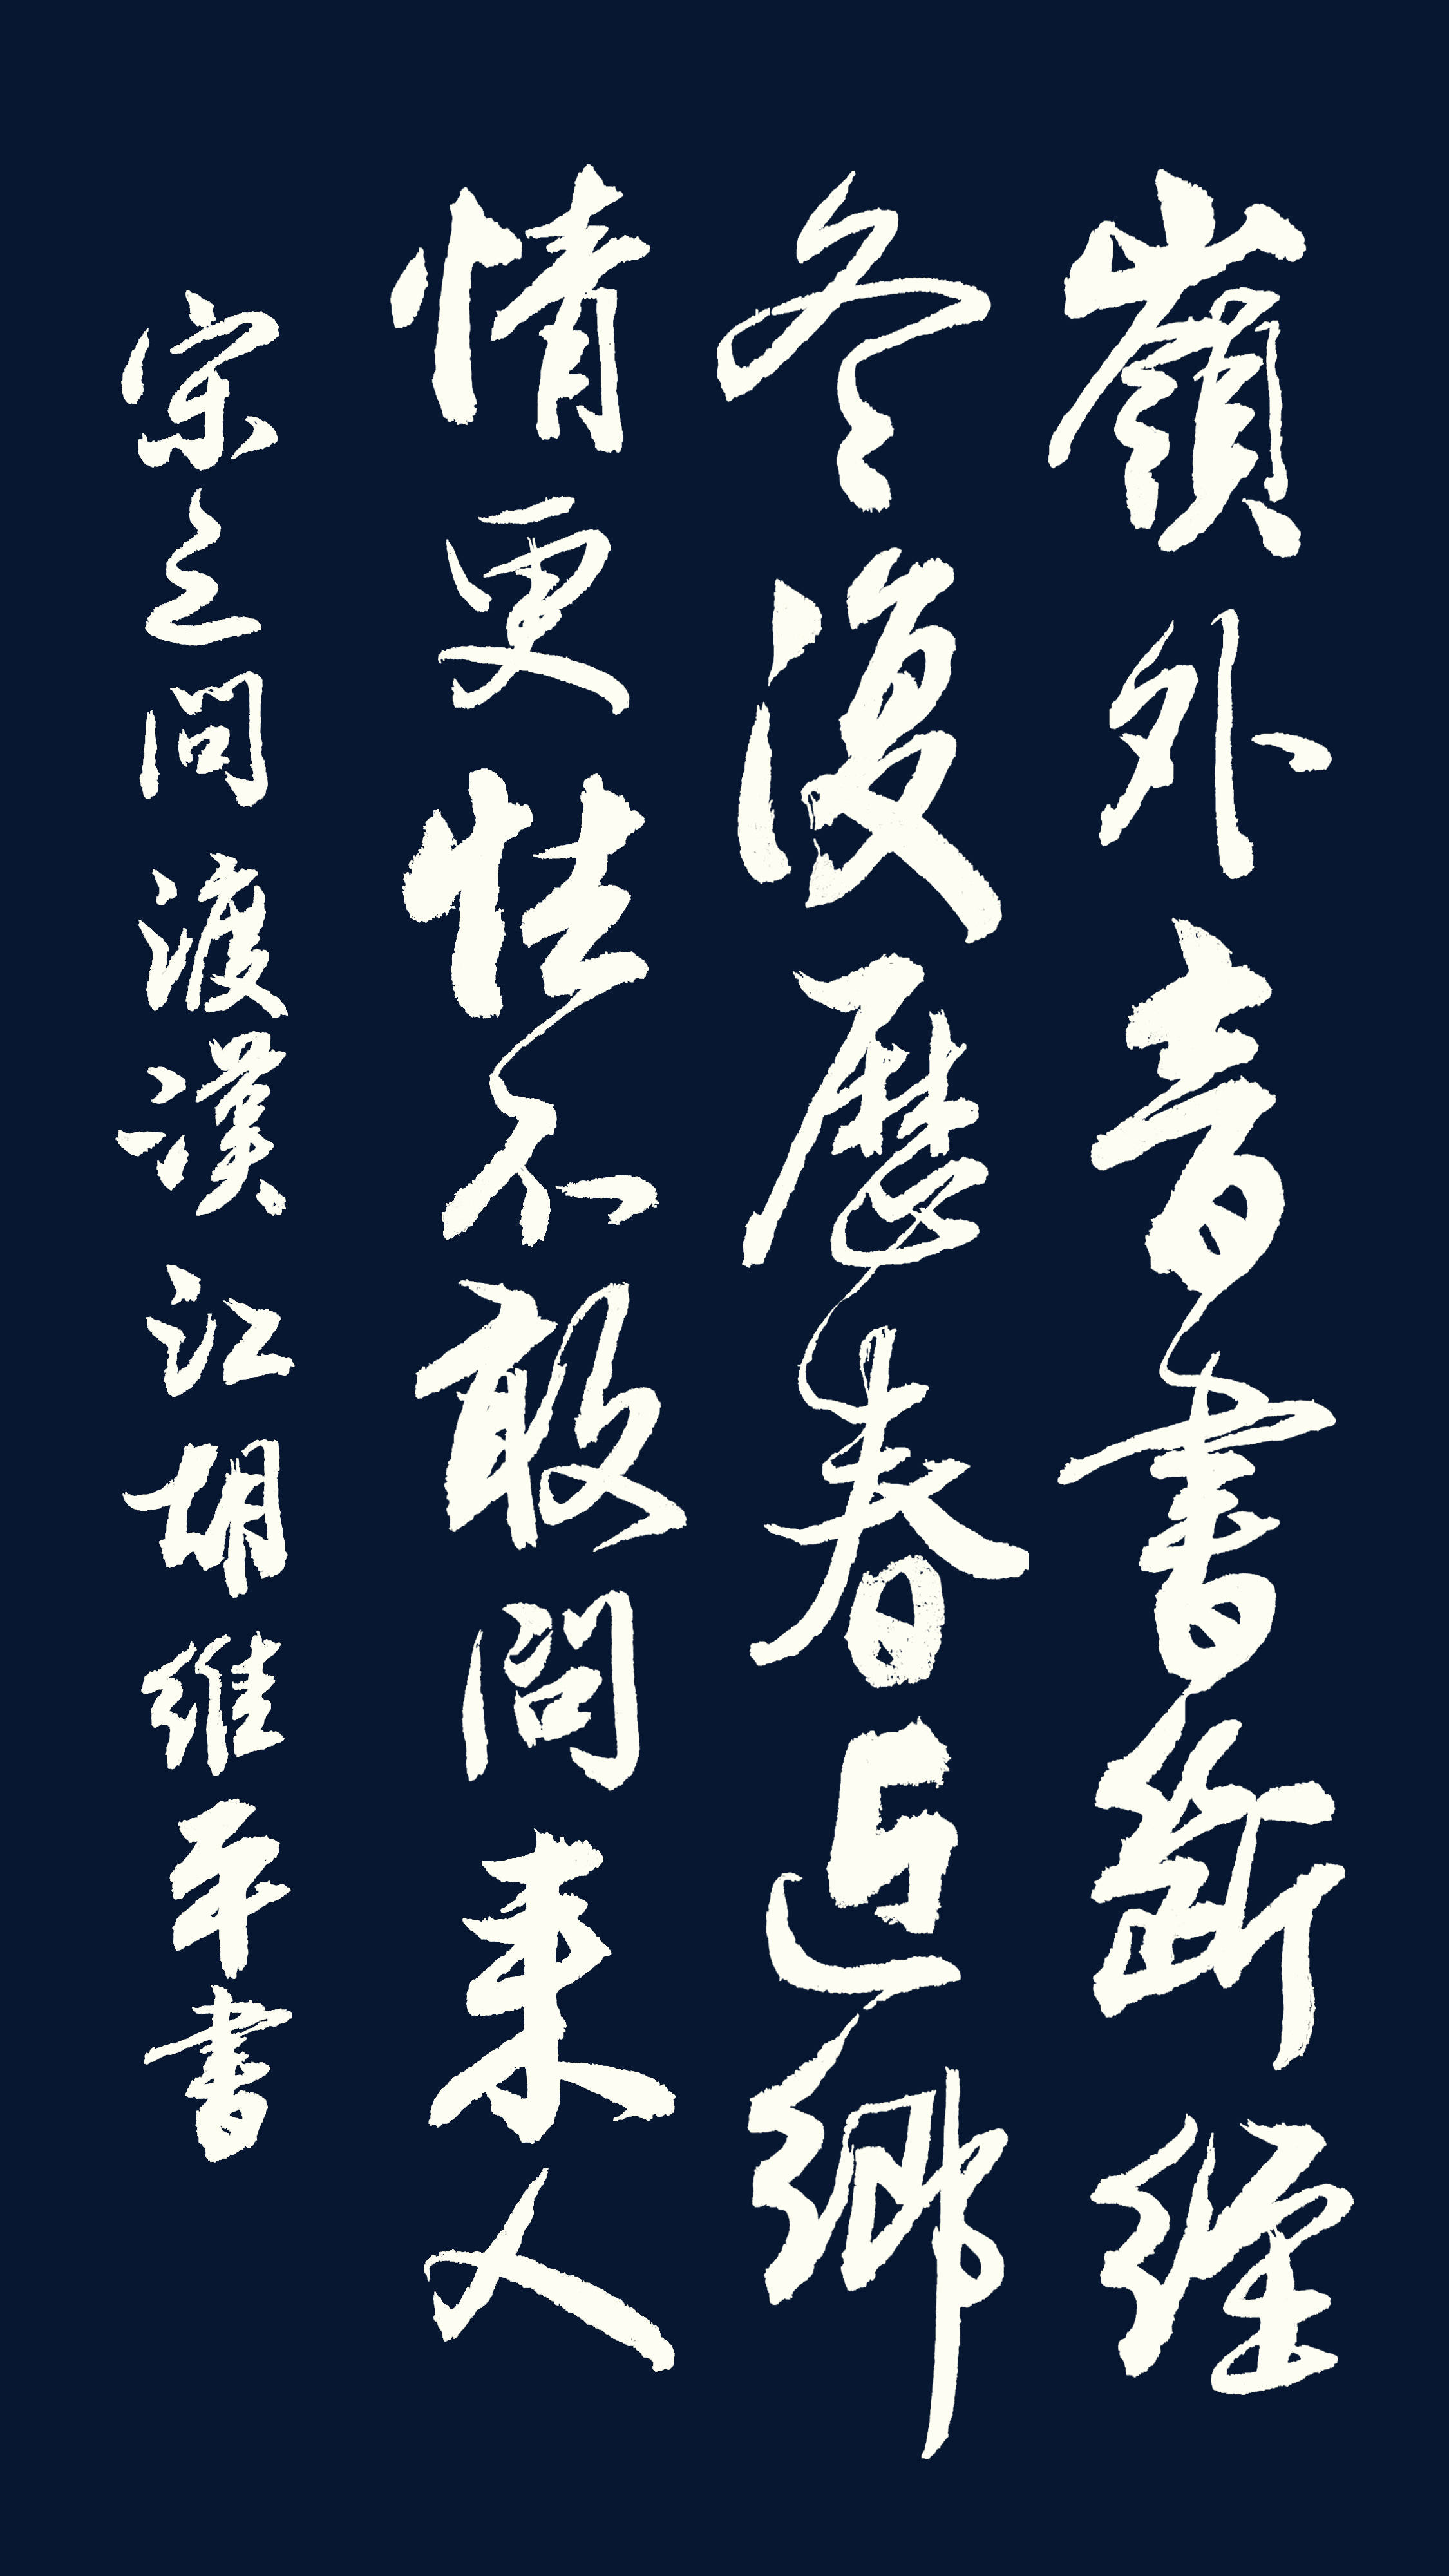 嶺外音書斷經
冬復歷春近鄉
情更怯不敢問來人
宋之問渡漢江胡維平書